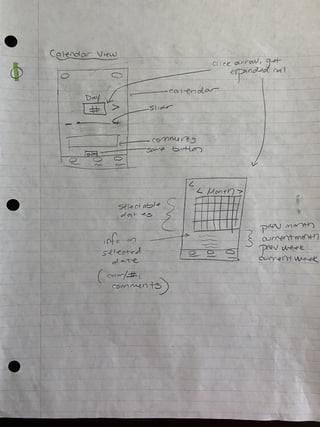 Calendar View
click arrow, get
expanded cal
Day
#
>
calendar
slider
comments
save button
<
< Month >
selectable
dates
info on
selected
date
comments)
prev month
current month
prev week
current week